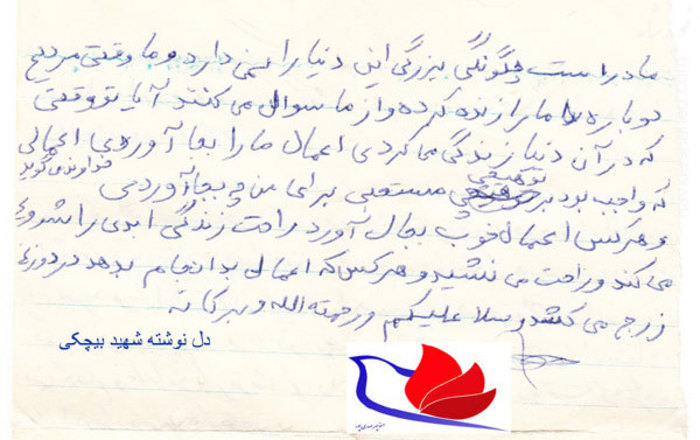 مادر است چگونگی بزرگی این دنیا را نمی دارد و ما وقتی مردیم
دوباره ما را زنده کرده و از ما سوال می کنند آیا تو وقتی
که در آن دنیا زندگی می کردی اعمال ما را بجا آوردی اعمالی
خداوند می گوید
که واجب بود بر تو کمیتی مستحبی برای من چه بجا آوردی
و هر کس اعمال خوب بجال آورد راحت زندگی ابدی را شروع
می کند و راحت می نشید و هر کس که اعمال بد انجام بدهد در دوزخ
زرج می کشد و سلا علیکم و رحمته الله و برکاته
دل نوشته شهید بیچکی